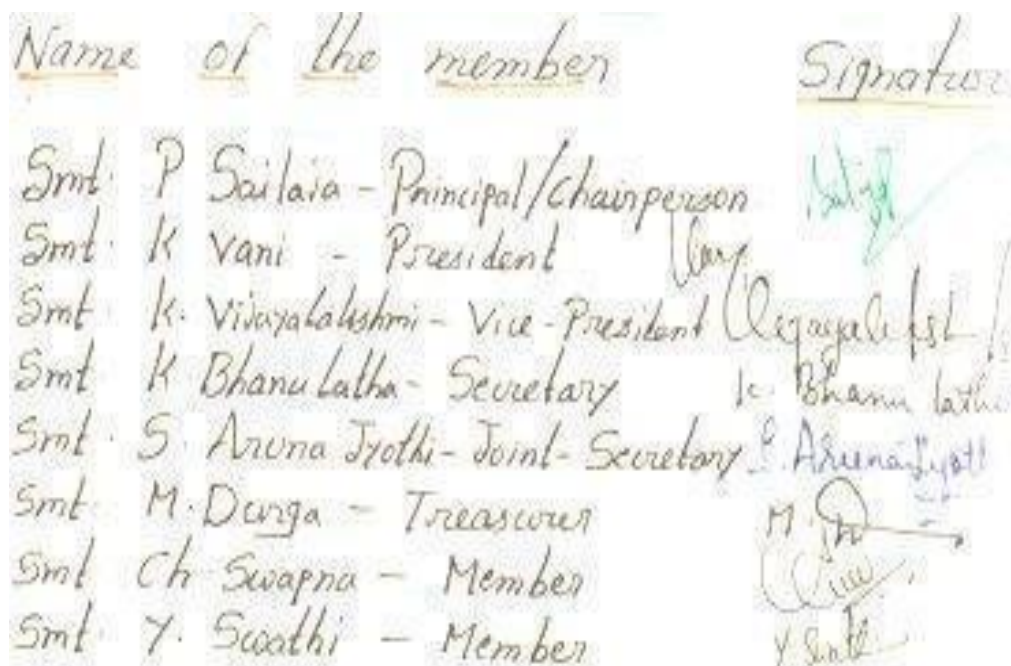 Name of the member Signature
Smt. P Sailaja - Principal/Chairperson
Smt. K Vani - President
Smt. K. Vijayalakshmi - Vice-President
Smt K Bhanu Latha - Secretary K. Bhanu latha
Smt. S. Aruna Jyothi - Joint-Secretary S. Aruna Jyoti
Smt M. Durga - Treasurer M.
Smt Ch Swapna - Member
Smt. Y. Swathi - Member